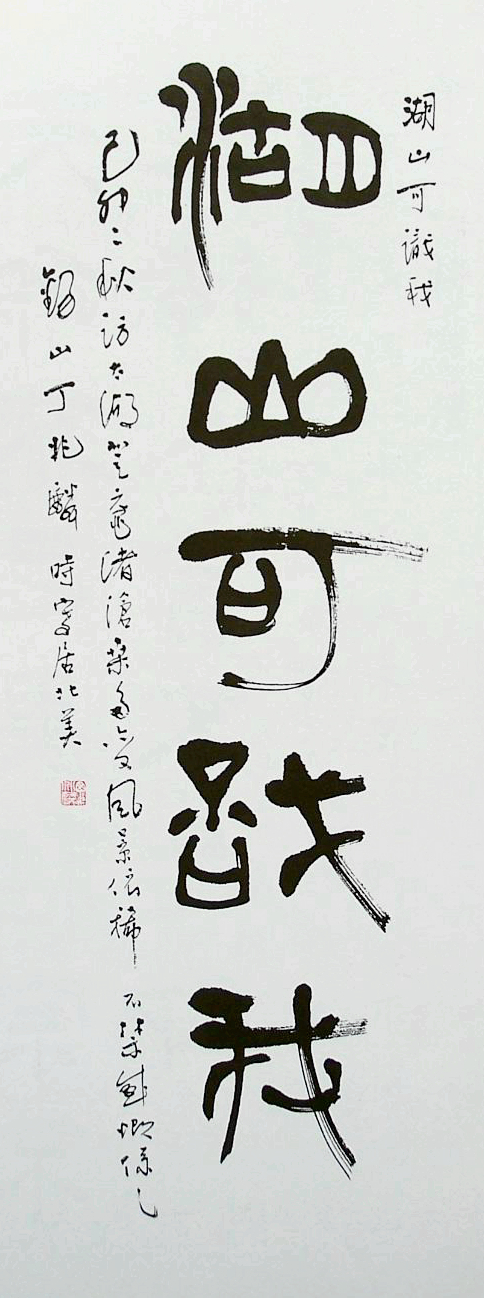 湖山可識我
湖山可識我
己卯之秋訪太湖登黿渚滄桑多變風景依稀 不禁感慨係之
錫山丁兆麟時寓居北美